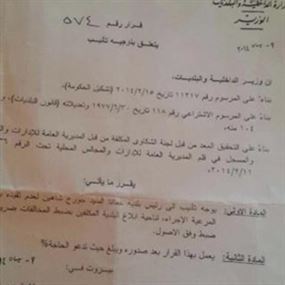 وزارة الداخلية والبلديات
الوزير
قرار رقم ٥٧٤
يتعلق بتوجيه تأنيب
ان وزير الداخلية والبلديات،
بناءً على المرسوم رقم ١١٢١٧ تاريخ ٢٠١٤/٢/١٥ (تشكيل الحكومة)،
بناءً على المرسوم الاشتراعي رقم ١١٨ تاريخ ١٩٧٧/٦/٣٠ وتعديلاته (قانون البلديات)،
١٠٤ منه،
بناءً على التحقيق المعد من قبل لجنة الشكاوى المكلفة من قبل المديرية العامة للإدارات
والمسجل في قلم المديرية العامة للإدارات والمجالس المحلية تحت الرقم
يقرر ما يأتي:
المادة الأولى: يوجه تأنيب الى رئيس بلدية السيد جورج شاهين لعدم
المرعية الاجراء، لناحية ابلاغ المكلفين بضبط المخالفات
ضبط وفق الاصول.
المادة الثانية: يعمل بهذا القرار بعد صدوره ويبلغ حيث تدعو الحاجة.
بيروت في: